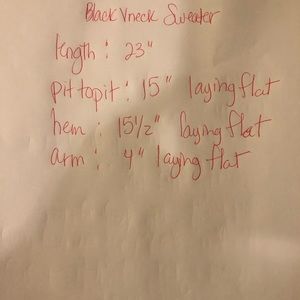 Black Vneck Sweater
length: 23"
pit to pit: 15" laying flat
hem: 15 1/2" laying flat
arm: 4" laying flat